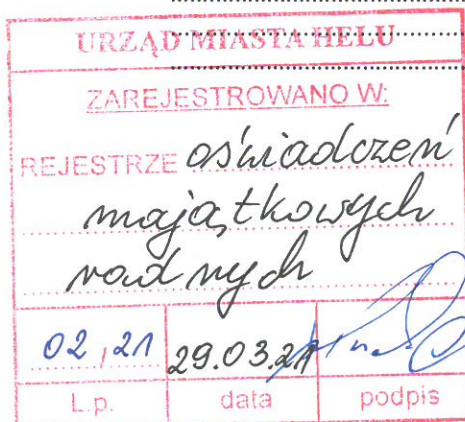 URZĄD MIASTA HELU
ZAREJESTROWANO W:
REJESTRZE oświadczeń
majątkowych
radnych
02,21 29.03.21
L.p. data podpis